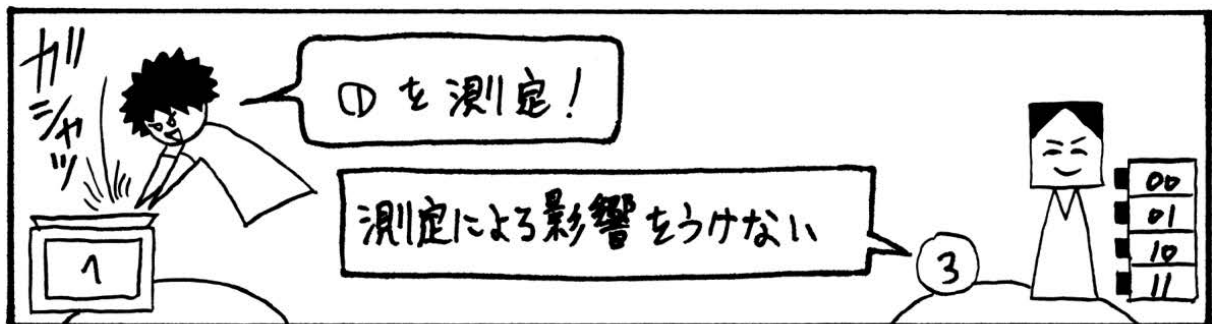 ガシャッ
①を測定!
測定による影響をうけない
1
3
00
01
10
11